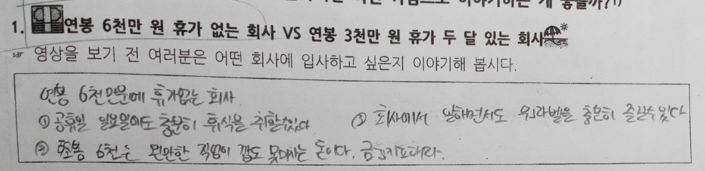 1. 연봉 6천만 원 휴가 없는 회사 VS 연봉 3천만 원 휴가 두 달 있는 회사
☞ 영상을 보기 전 여러분은 어떤 회사에 입사하고 싶은지 이야기해 봅시다.
연봉 6천만원에 휴가없는 회사
① 공휴일 일요일에도 충분히 휴식을 취할수있다 ③ 회사에서 일하면서도 워라벨을 충분히 즐길수있다
② 초봉 6천은 왠만한 직업이 깝도 못대시는 돈이다.